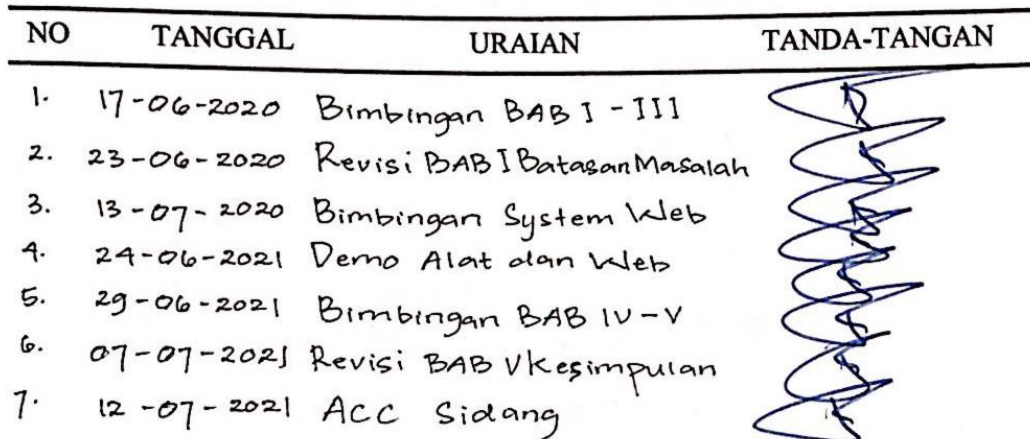 NO TANGGAL URAIAN TANDA-TANGAN
1. 17-06-2020 Bimbingan BAB I - III
2. 23-06-2020 Revisi BAB I Batasan Masalah
3. 13-07-2020 Bimbingan System Web
4. 24-06-2021 Demo Alat dan Web
5. 29-06-2021 Bimbingan BAB IV-V
6. 07-07-2021 Revisi BAB V Kesimpulan
7. 12-07-2021 ACC Sidang